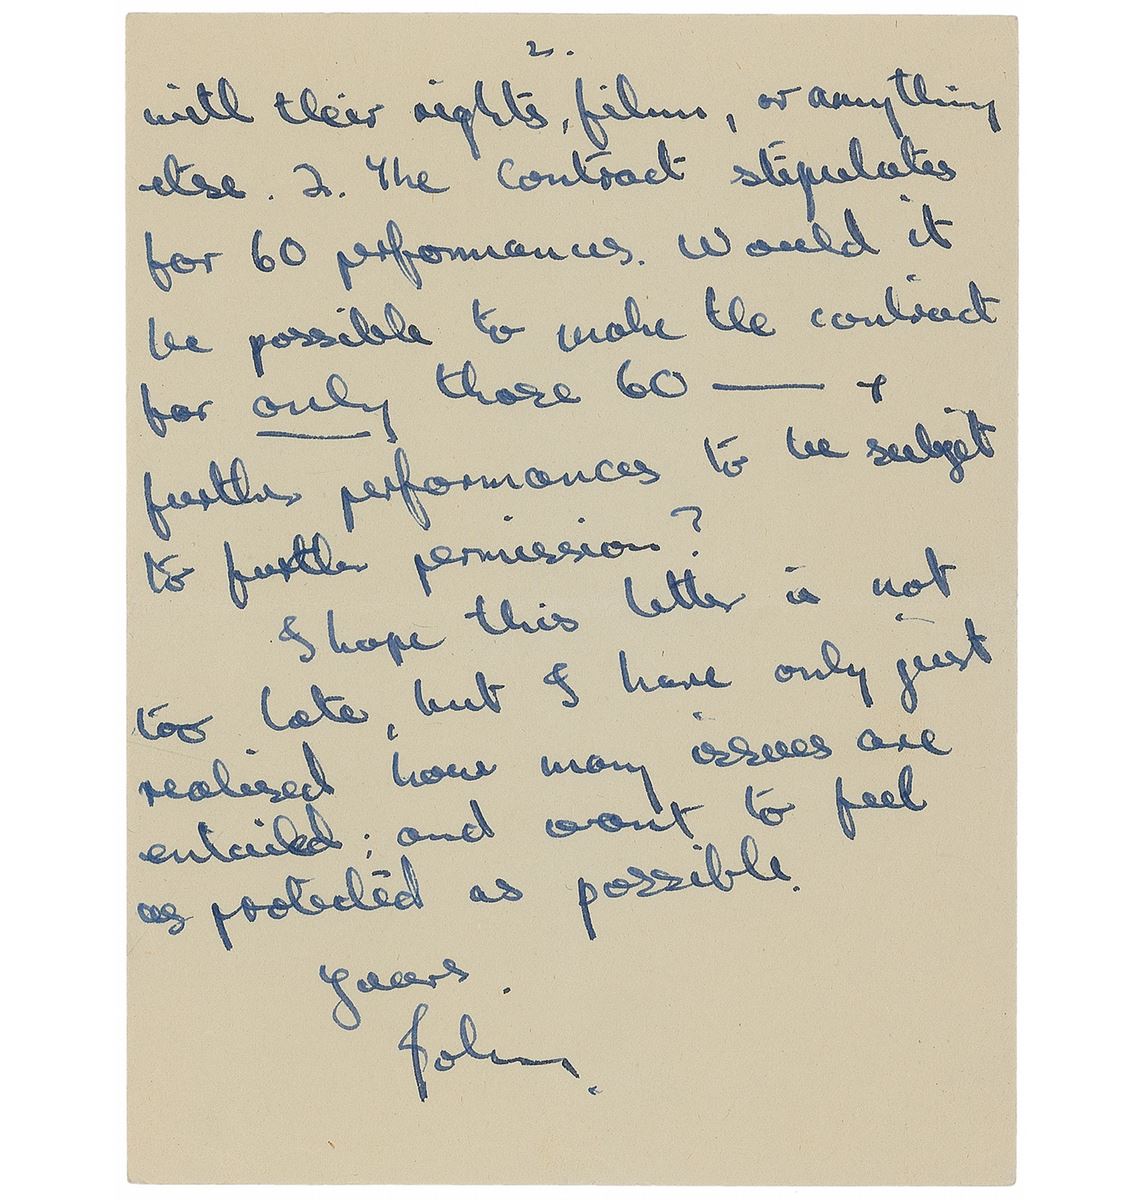 2.
with their rights, films, or anything
else. 2. The contract stipulates
for 60 performances. Would it
be possible to make the contract
for only those 60 — +
further performances to be subject
to further permission?
I hope this letter is not
too late, but I have only just
realised how many issues are
entailed; and want to feel
as protected as possible.
Yours
John.